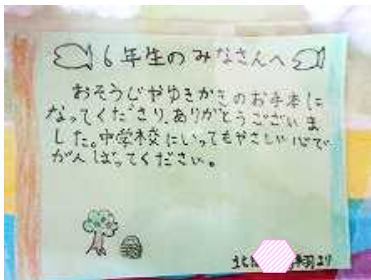 6年生のみなさんへ
おそうじやゆきかきのお手本に
なってくださり、ありがとうございま
した。中学校にいってもやさしい心で
がんばってください。
より